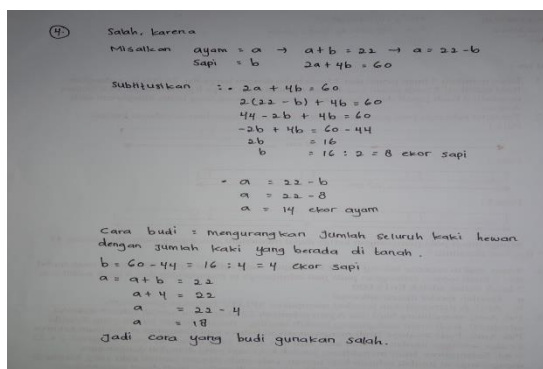 4. Salah, karena
Misalkan ayam = a → a+b = 22 → a = 22-b
Sapi = b 2a + 4b = 60
Subtitusikan : • 2a + 4b = 60
2(22 - b) + 4b = 60
44 - 2b + 4b = 60
-2b + 4b = 60 - 44
2b = 16
b = 16 : 2 = 8 ekor sapi
- a = 22 - b
a = 22 - 8
a = 14 ekor ayam
Cara budi = mengurangkan jumlah seluruh kaki hewan
dengan jumlah kaki yang berada di tanah.
b = 60 - 44 = 16 : 4 = 4 ekor sapi
a = a + b = 22
a + 4 = 22
a = 22 - 4
a = 18
Jadi cara yang budi gunakan salah.